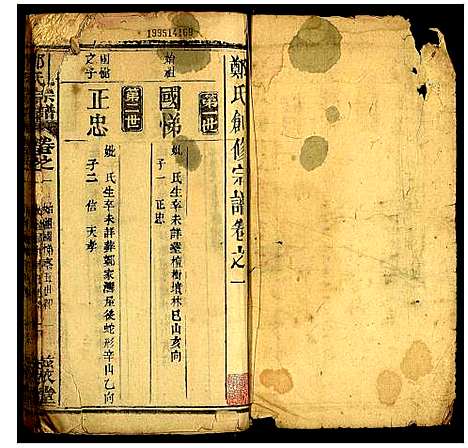 199514169
鄭氏創修宗譜卷之一
第一世
始祖
國悌
妣 氏生卒未詳葬 樹墳林巳山亥向
子一 正忠
第二世
國悌
之子
正忠
妣 氏生卒未詳葬鄭家灣屋後蛇形辛山乙向
子二 信 天孝
鄭氏宗譜 卷之一